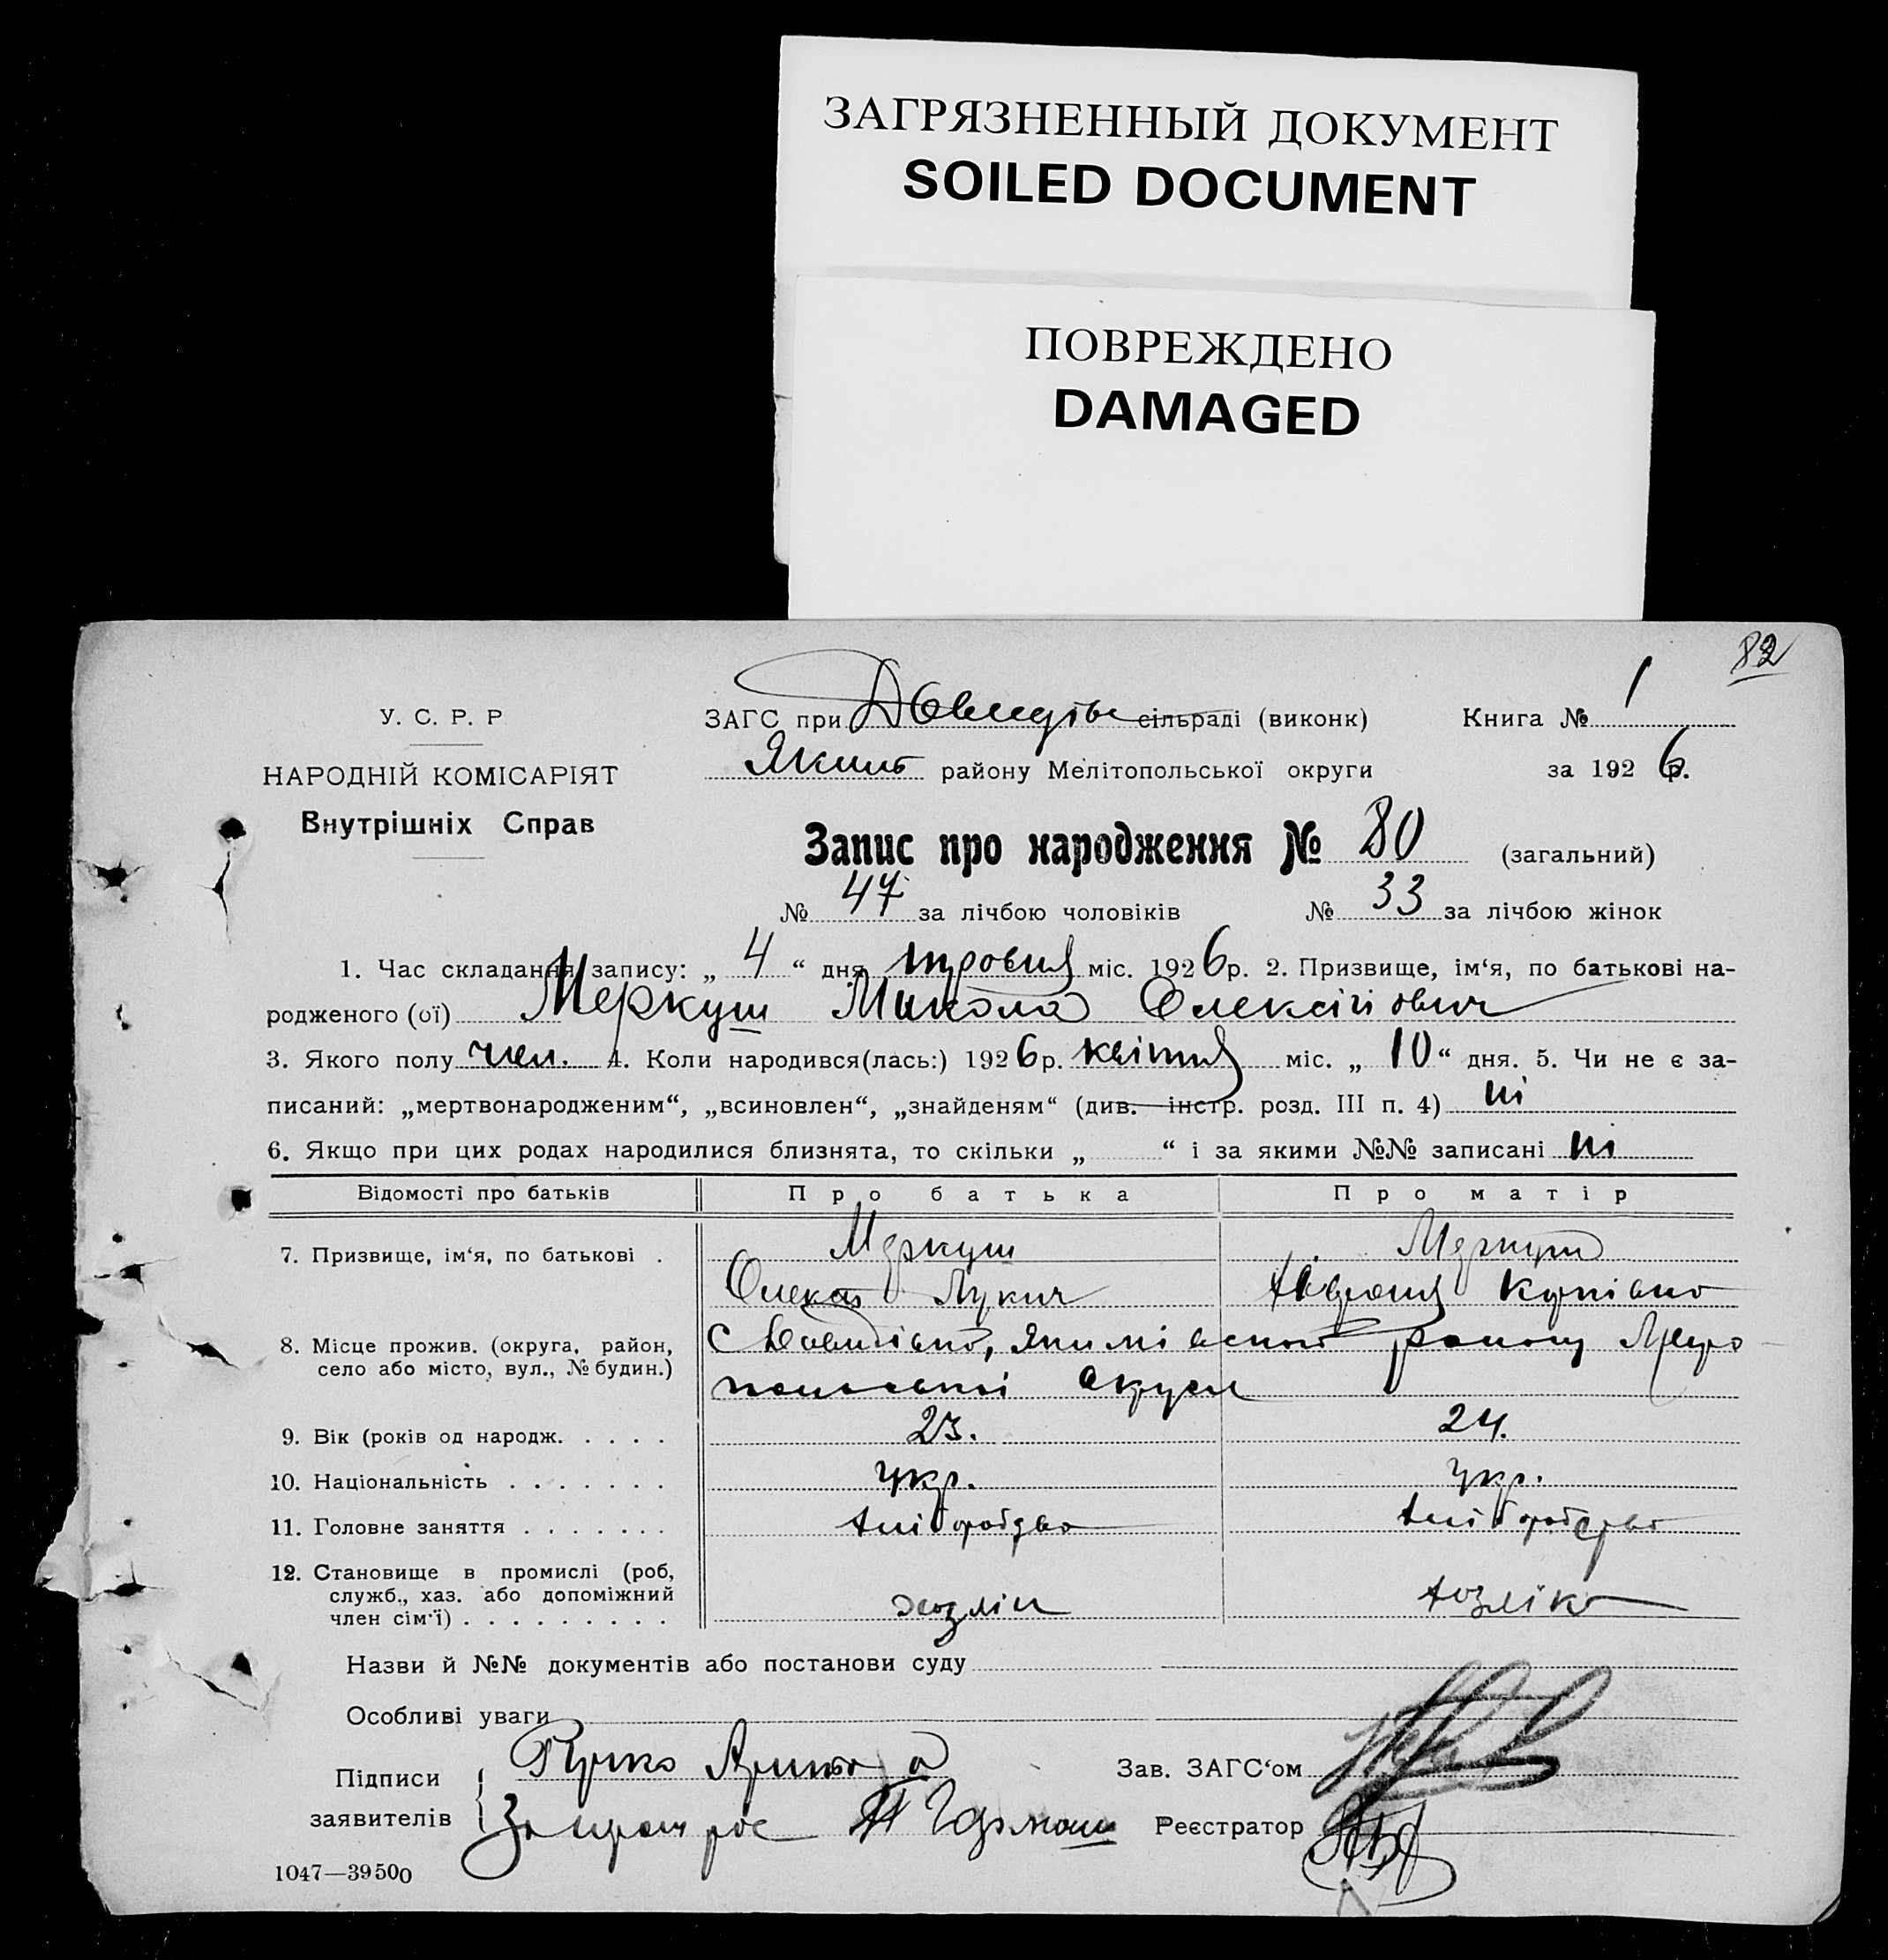 ЗАГРЯЗНЕННЫЙ ДОКУМЕНТ
SOILED DOCUMENT
ПОВРЕЖДЕНО
DAMAGED
82
У. С. Р. Р
НАРОДНІЙ КОМІСАРІЯТ
Внутрішніх Справ
ЗАГС при сільраді (виконк) Книга № 1
Яким району Мелітопольської округи за 1926 р.
Запис про народження № 80 (загальний)
№ 47 за лічбою чоловіків № 33 за лічбою жінок
1. Час складання запису: „ 4 “ дня травня міс. 1926 р. 2. Призвище, ім‘я, по батькові на-
родженого (ої) Меркуш Микола Олексійович
3. Якого полу чол. 4. Коли народився(лась:) 1926 р. квітня міс. „ 10 “ дня. 5. Чи не є за-
писаний: „мертвонародженим“, „всиновлен“, „знайденям“ (див. інстр. розд. III п. 4) ні
6. Якщо при цих родах народилися близнята, то скільки „ “ і за якими №№ записані ні
Відомості про батьків Про батька Про матір
7. Призвище, ім‘я, по батькові . Меркуш Меркуш
Олекса Лукич
8. Місце прожив. (округа, район,
село або місто, вул., № будин.)
с Давидівка, Якимівського району
округи
9. Вік (років од народж. . . . . 23. 24.
10. Національність . . . . . . . укр. укр.
11. Головне заняття . . . . . . . хліборобство хліборобство
12. Становище в промислі (роб,
служб., хаз. або допоміжний
член сім‘ї) . . . . . . . . .
Назви й №№ документів або постанови суду
Особливі уваги
Підписи
заявителів
Зав. ЗАГС‘ом
Реєстратор
1047—39500